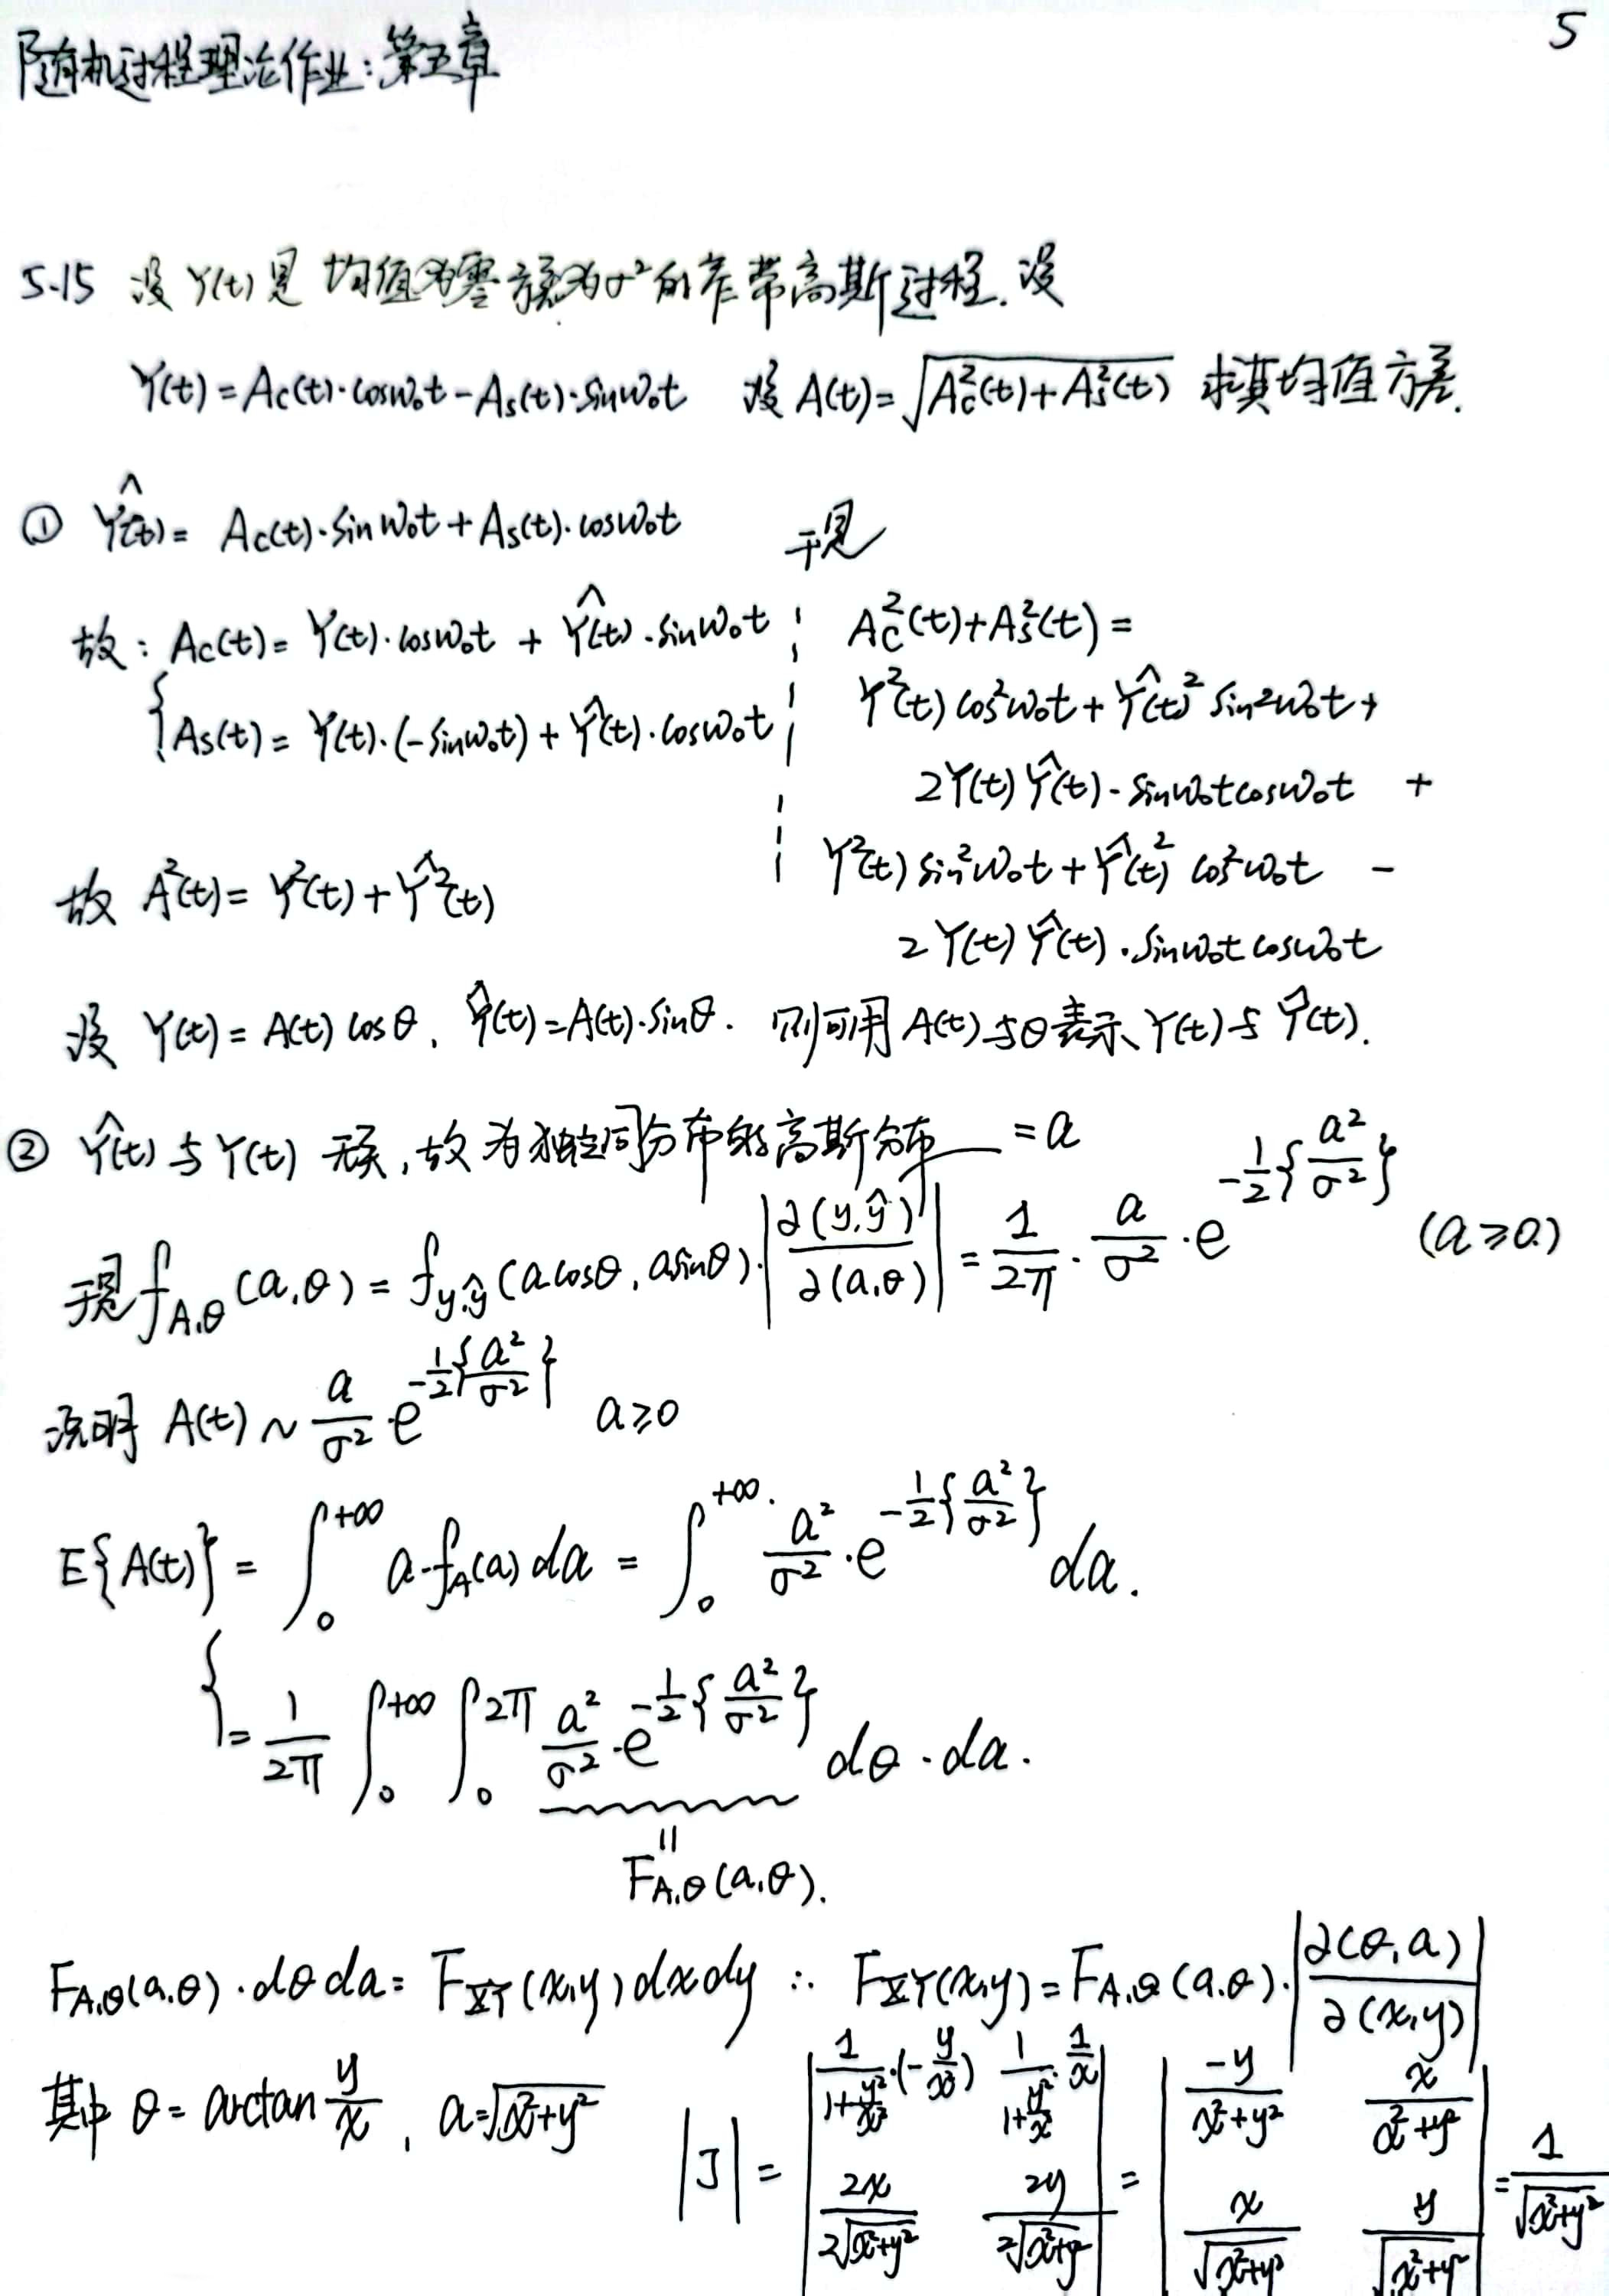 5
随机过程理论作业：第五章
5-15 设 Y(t) 是 均值为零方差为σ² 的窄带高斯过程. 设
Y(t) = Ac(t)·cosω₀t − As(t)·sinω₀t 设 A(t) = √(Ac²(t)+As²(t)) 求其均值方差.
① Ŷ(t) = Ac(t)·sinω₀t + As(t)·cosω₀t
故: Ac(t) = Y(t)·cosω₀t + Ŷ(t)·sinω₀t
{ As(t) = Y(t)·(−sinω₀t) + Ŷ(t)·cosω₀t
故 A²(t) = Y²(t) + Ŷ²(t)
于是
Ac²(t)+As²(t) =
Y²(t) cos²ω₀t + Ŷ(t)² sin²ω₀t +
2Y(t)Ŷ(t)·sinω₀tcosω₀t +
Y²(t) sin²ω₀t + Ŷ(t)² cos²ω₀t −
2Y(t)Ŷ(t)·sinω₀tcosω₀t
设 Y(t) = A(t) cosθ, Ŷ(t) = A(t)·sinθ. 则可用 A(t)与θ表示Y(t)与Ŷ(t).
② Ŷ(t) 与 Y(t) 无关, 故为独立同分布的高斯分布 = a
于是 f_{A,θ}(a,θ) = f_{y,ŷ}(acosθ, asinθ)·|∂(y,ŷ)/∂(a,θ)| = 1/2π · a/σ² · e^{−1/2{a²/σ²}} (a≥0)
说明 A(t) ~ a/σ² · e^{−1/2{a²/σ²}} a≥0
E{A(t)} = ∫₀^{+∞} a·f_A(a) da = ∫₀^{+∞} a²/σ² · e^{−1/2{a²/σ²}} da.
{ = 1/2π ∫₀^{+∞} ∫₀^{2π} a²/σ² · e^{−1/2{a²/σ²}} dθ·da.
॥
F_{A,θ}(a,θ).
F_{A,θ}(a,θ)·dθda = F_{XY}(x,y)dxdy ∴ F_{XY}(x,y) = F_{A,θ}(a,θ)·|∂(θ,a)/∂(x,y)|
其中 θ = arctan y/x , a = √(x²+y²) |J| = | 1/(1+y²/x²)·(−y/x²) 1/(1+y²/x²)·1/x ; 2x/2√(x²+y²) 2y/2√(x²+y²) | = | −y/(x²+y²) x/(x²+y²) ; x/√(x²+y²) y/√(x²+y²) | = 1/√(x²+y²)